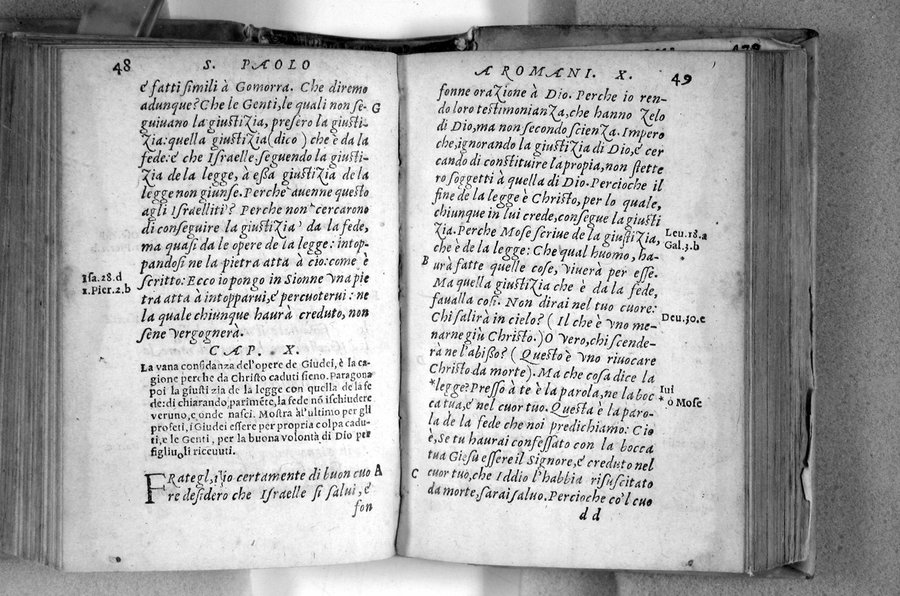 48 S. PAOLO
é fatti simili à Gomorra. Che diremo
adunque? Che le Genti, le quali non se-
guiuano la giustizia, presero la giusti- G
zia: quella giustizia (dico) che è da la
fede: é che Israelle seguendo la giusti-
zia de la legge, à essa giustizia de la
legge non giunse. Perche auenne questo
agli Israelliti? Perche non cercarono
di conseguire la giustizia da la fede,
ma quasi da le opere de la legge: intop-
pandosi ne la pietra atta à ciò: come è
scritto: Ecco io pongo in Sionne vna pie
tra atta à intopparui, é percuoterui: ne
la quale chiunque haurà creduto, non
sene vergognerà.
Isa. 28. d
1. Pier. 2. b
CAP. X.
La vana confidanza del'opere de Giudei, è la ca-
gione perche da Christo caduti sieno. Paragona
poi la giustizia de la legge con quella de la fe
de: dichiarando, parimēte, la fede nō ischiudere
veruno, e onde nasci. Mostra al'ultimo per gli
profeti, i Giudei essere per propria colpa cadu-
ti, e le Genti, per la buona volontà di Dio per
figliuoli riceuuti.
FRategli, io certamente di buon cuo A
re desidero che Israelle si salui, é
fon
A ROMANI. X. 49
fonne orazione à Dio. Perche io ren-
do loro testimonianza, che hanno zelo
di Dio, ma non secondo scienza. Impero
che, ignorando la giustizia di Dio, é cer
cando di constituire la propia, non stette
ro soggetti à quella di Dio. Percioche il
fine de la legge è Christo, per lo quale,
chiunque in lui crede, consegue la giusti
zia. Perche Mose scriue de la giustizia,
che è de la legge: Che qual huomo, ha-
B urà fatte quelle cose, viuerà per esse.
Ma quella giustizia che è da la fede,
faualla così. Non dirai nel tuo cuore:
Chi salirà in cielo? (Il che è vno me-
narne giù Christo.) O vero, chi scende-
rà ne l'abisso? (Questo è vno riuocare
Christo da morte). Ma che cosa dice la
*legge? Presso à te è la parola, ne la boc
ca tua, é nel cuor tuo. Questa è la paro-
la de la fede che noi predichiamo: Cio
è, Se tu haurai confessato con la bocca
tua Giesù essere il Signore, é creduto nel
C cuor tuo, che Iddio l'habbia risuscitato
da morte, sarai saluo. Percioche co'l cuo
dd
Leu. 18. a
Gal. 3. b
*
Deu. 30. e
Iui
ò Mose